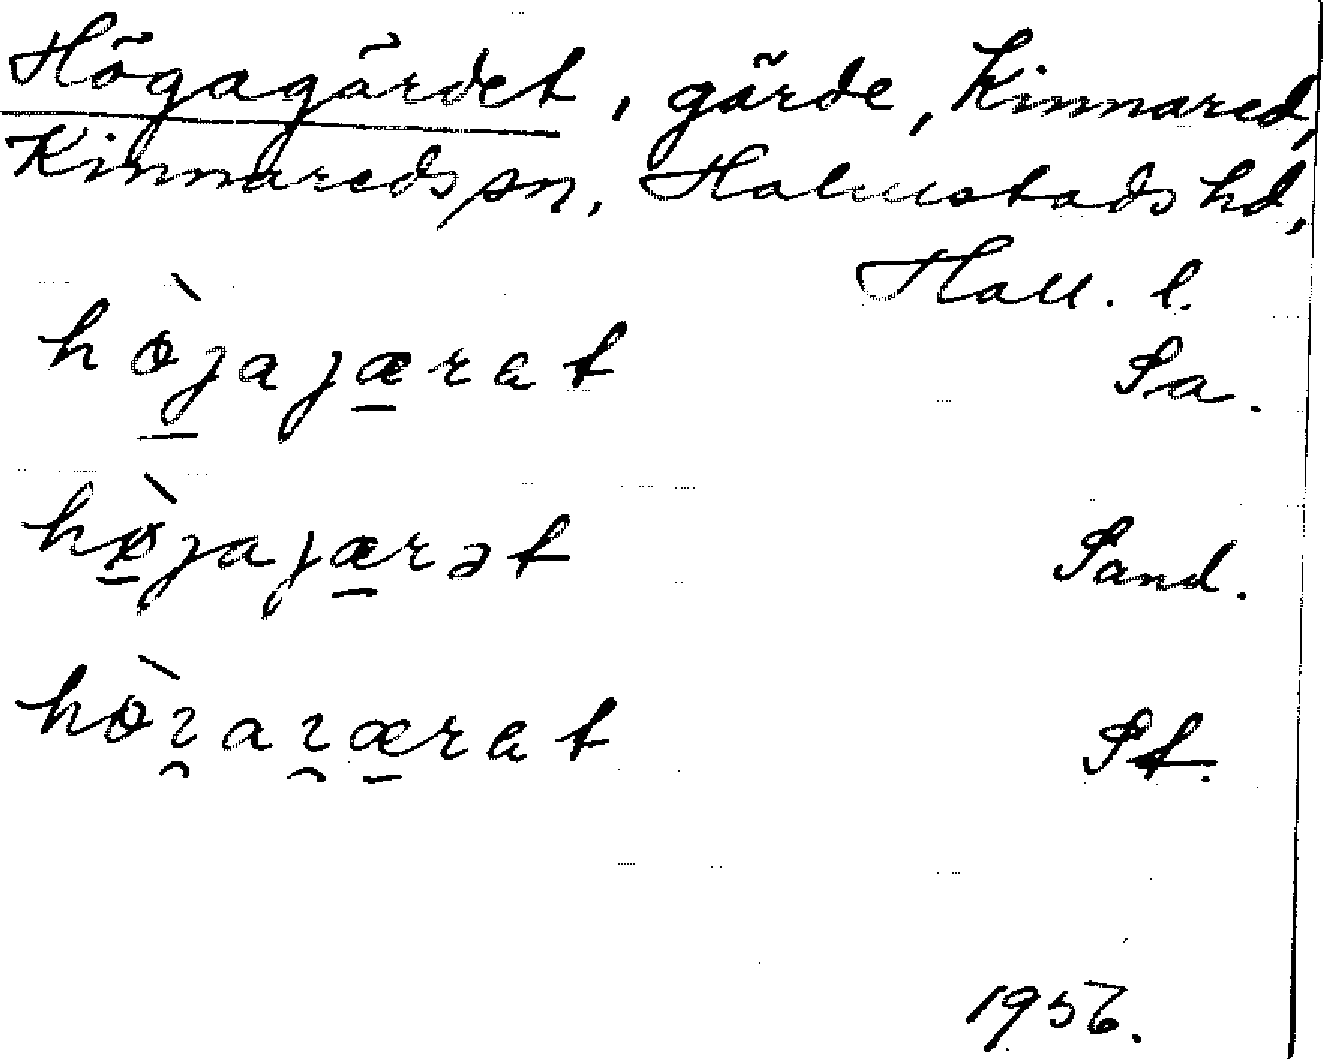 Högagärdet, gärde, Kinnared,
Kinnareds sn, Halmstads hd,
Hall. l.
hø̀jajæ̱rat Sa.
hø̱̀jajæ̱rət Sand.
St.
1956.